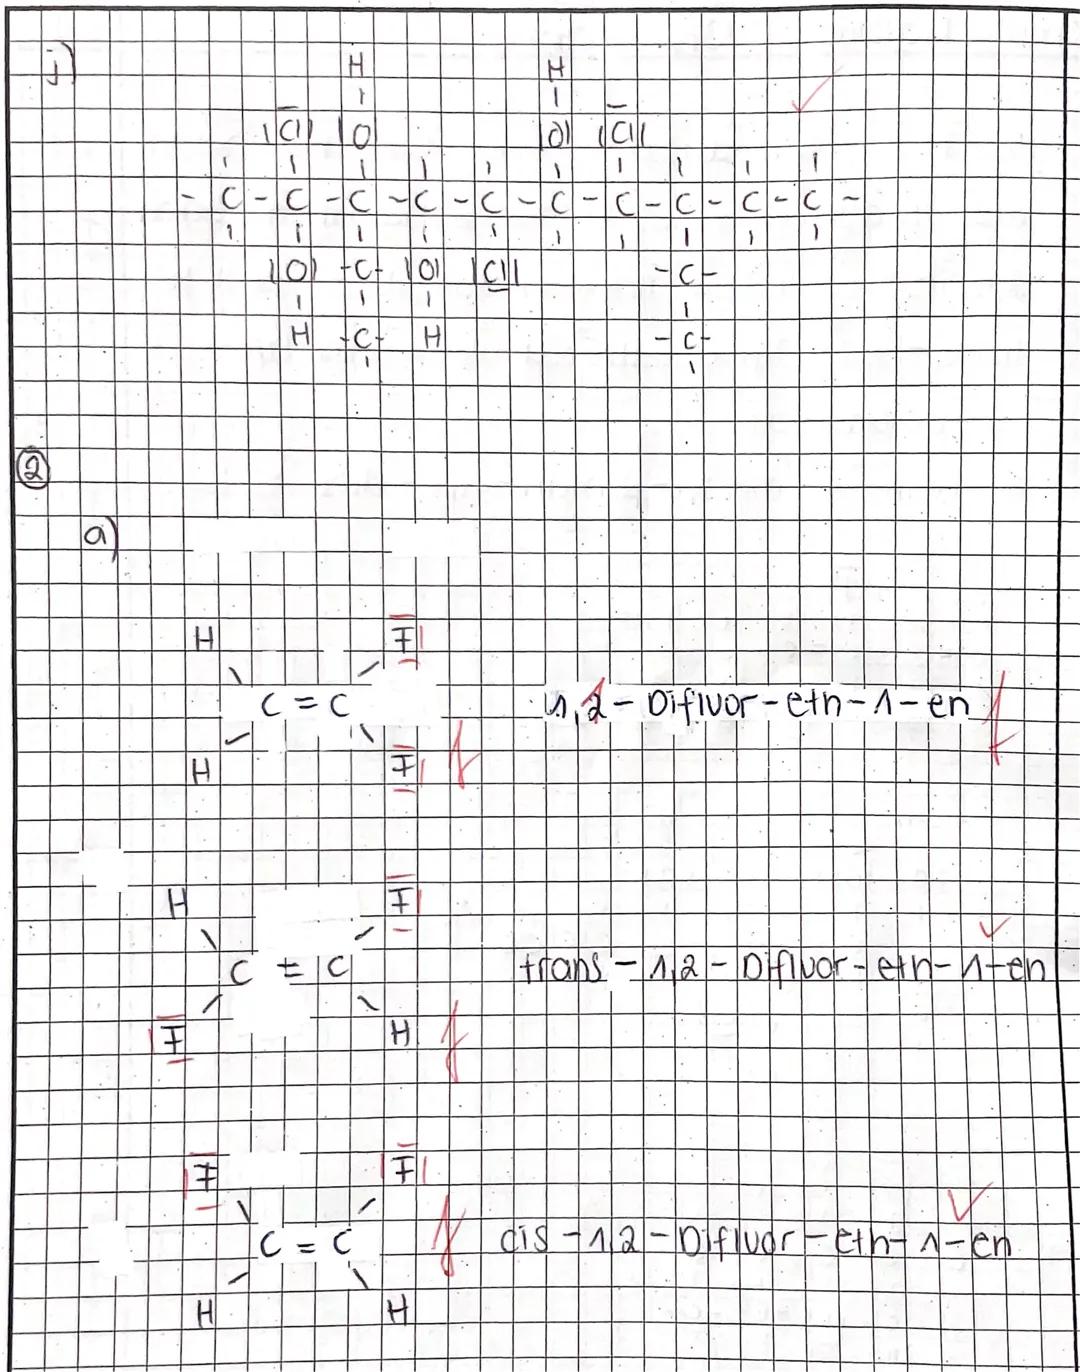 j)
H H
|
|Cl| |O |O| |Cl|
- C - C - C - C - C - C - C - C - C - C -
|O| -C- |O| |Cl| -C-
H -C- H -C-
2
a)
H F|
C = C 1,2 - Difluor - eth - 1 - en f
H F| f
H F|
C = C trans - 1,2 - Difluor - eth - 1 - en
|F H f
|F |F|
C = C f cis - 1,2 - Difluor - eth - 1 - en
H H